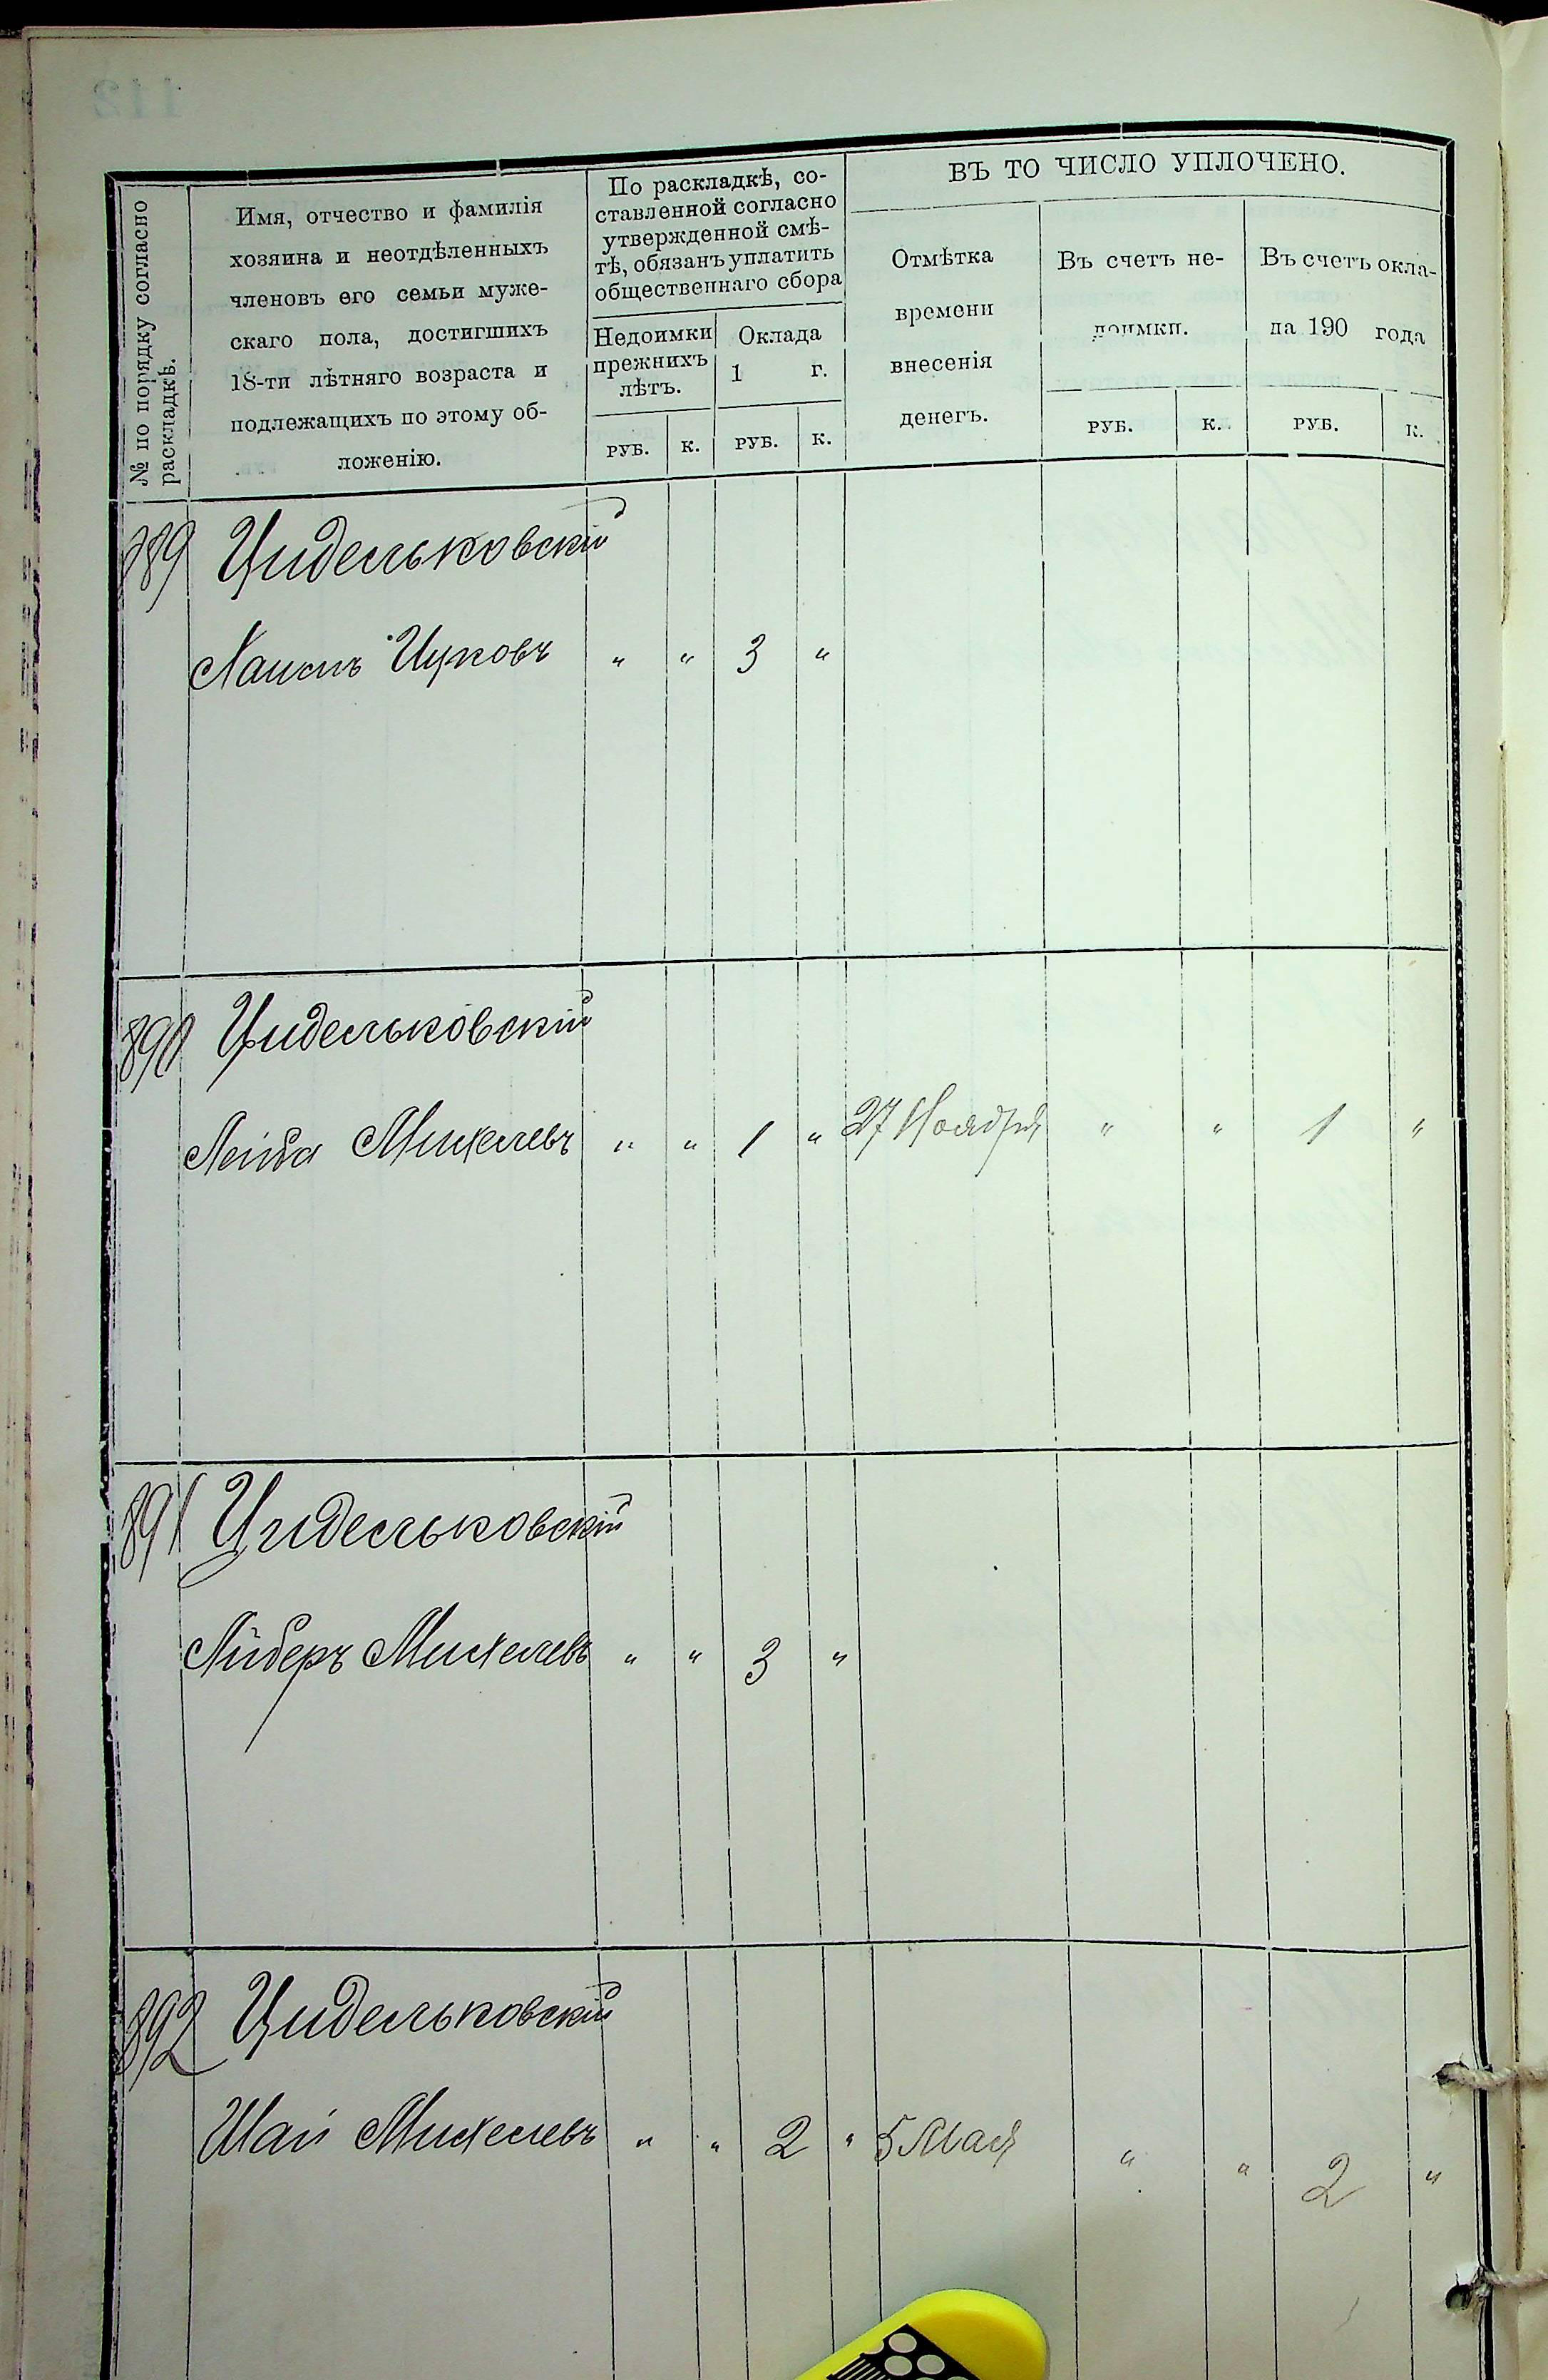 № по порядку согласно
раскладкѣ.
Имя, отчество и фамилія
хозяина и неотдѣленныхъ
членовъ его семьи муже-
скаго пола, достигшихъ
18-ти лѣтняго возраста и
подлежащихъ по этому об-
ложенію.
По раскладкѣ, со-
ставленной согласно
утвержденной смѣ-
тѣ, обязанъ уплатить
общественнаго сбора
Недоимки
прежнихъ
лѣтъ.
Оклада
1 г.
РУБ. К. РУБ. К.
ВЪ ТО ЧИСЛО УПЛОЧЕНО.
Отмѣтка
времени
внесенія
денегъ.
Въ счетъ не-
доимки.
Въ счетъ окла-
да 190 года
РУБ. К. РУБ. К.
889 Цидельковскій
Ицковъ " " 3 "
890 Цидельковскій
Лейба Михелевъ " " 1 " 27 Ноября " " 1 "
891 Цидельковскій
Либеръ Михелевъ " " 3 "
892 Цидельковскій
Шай Михелевъ " " 2 " 5 Мая " " 2 "